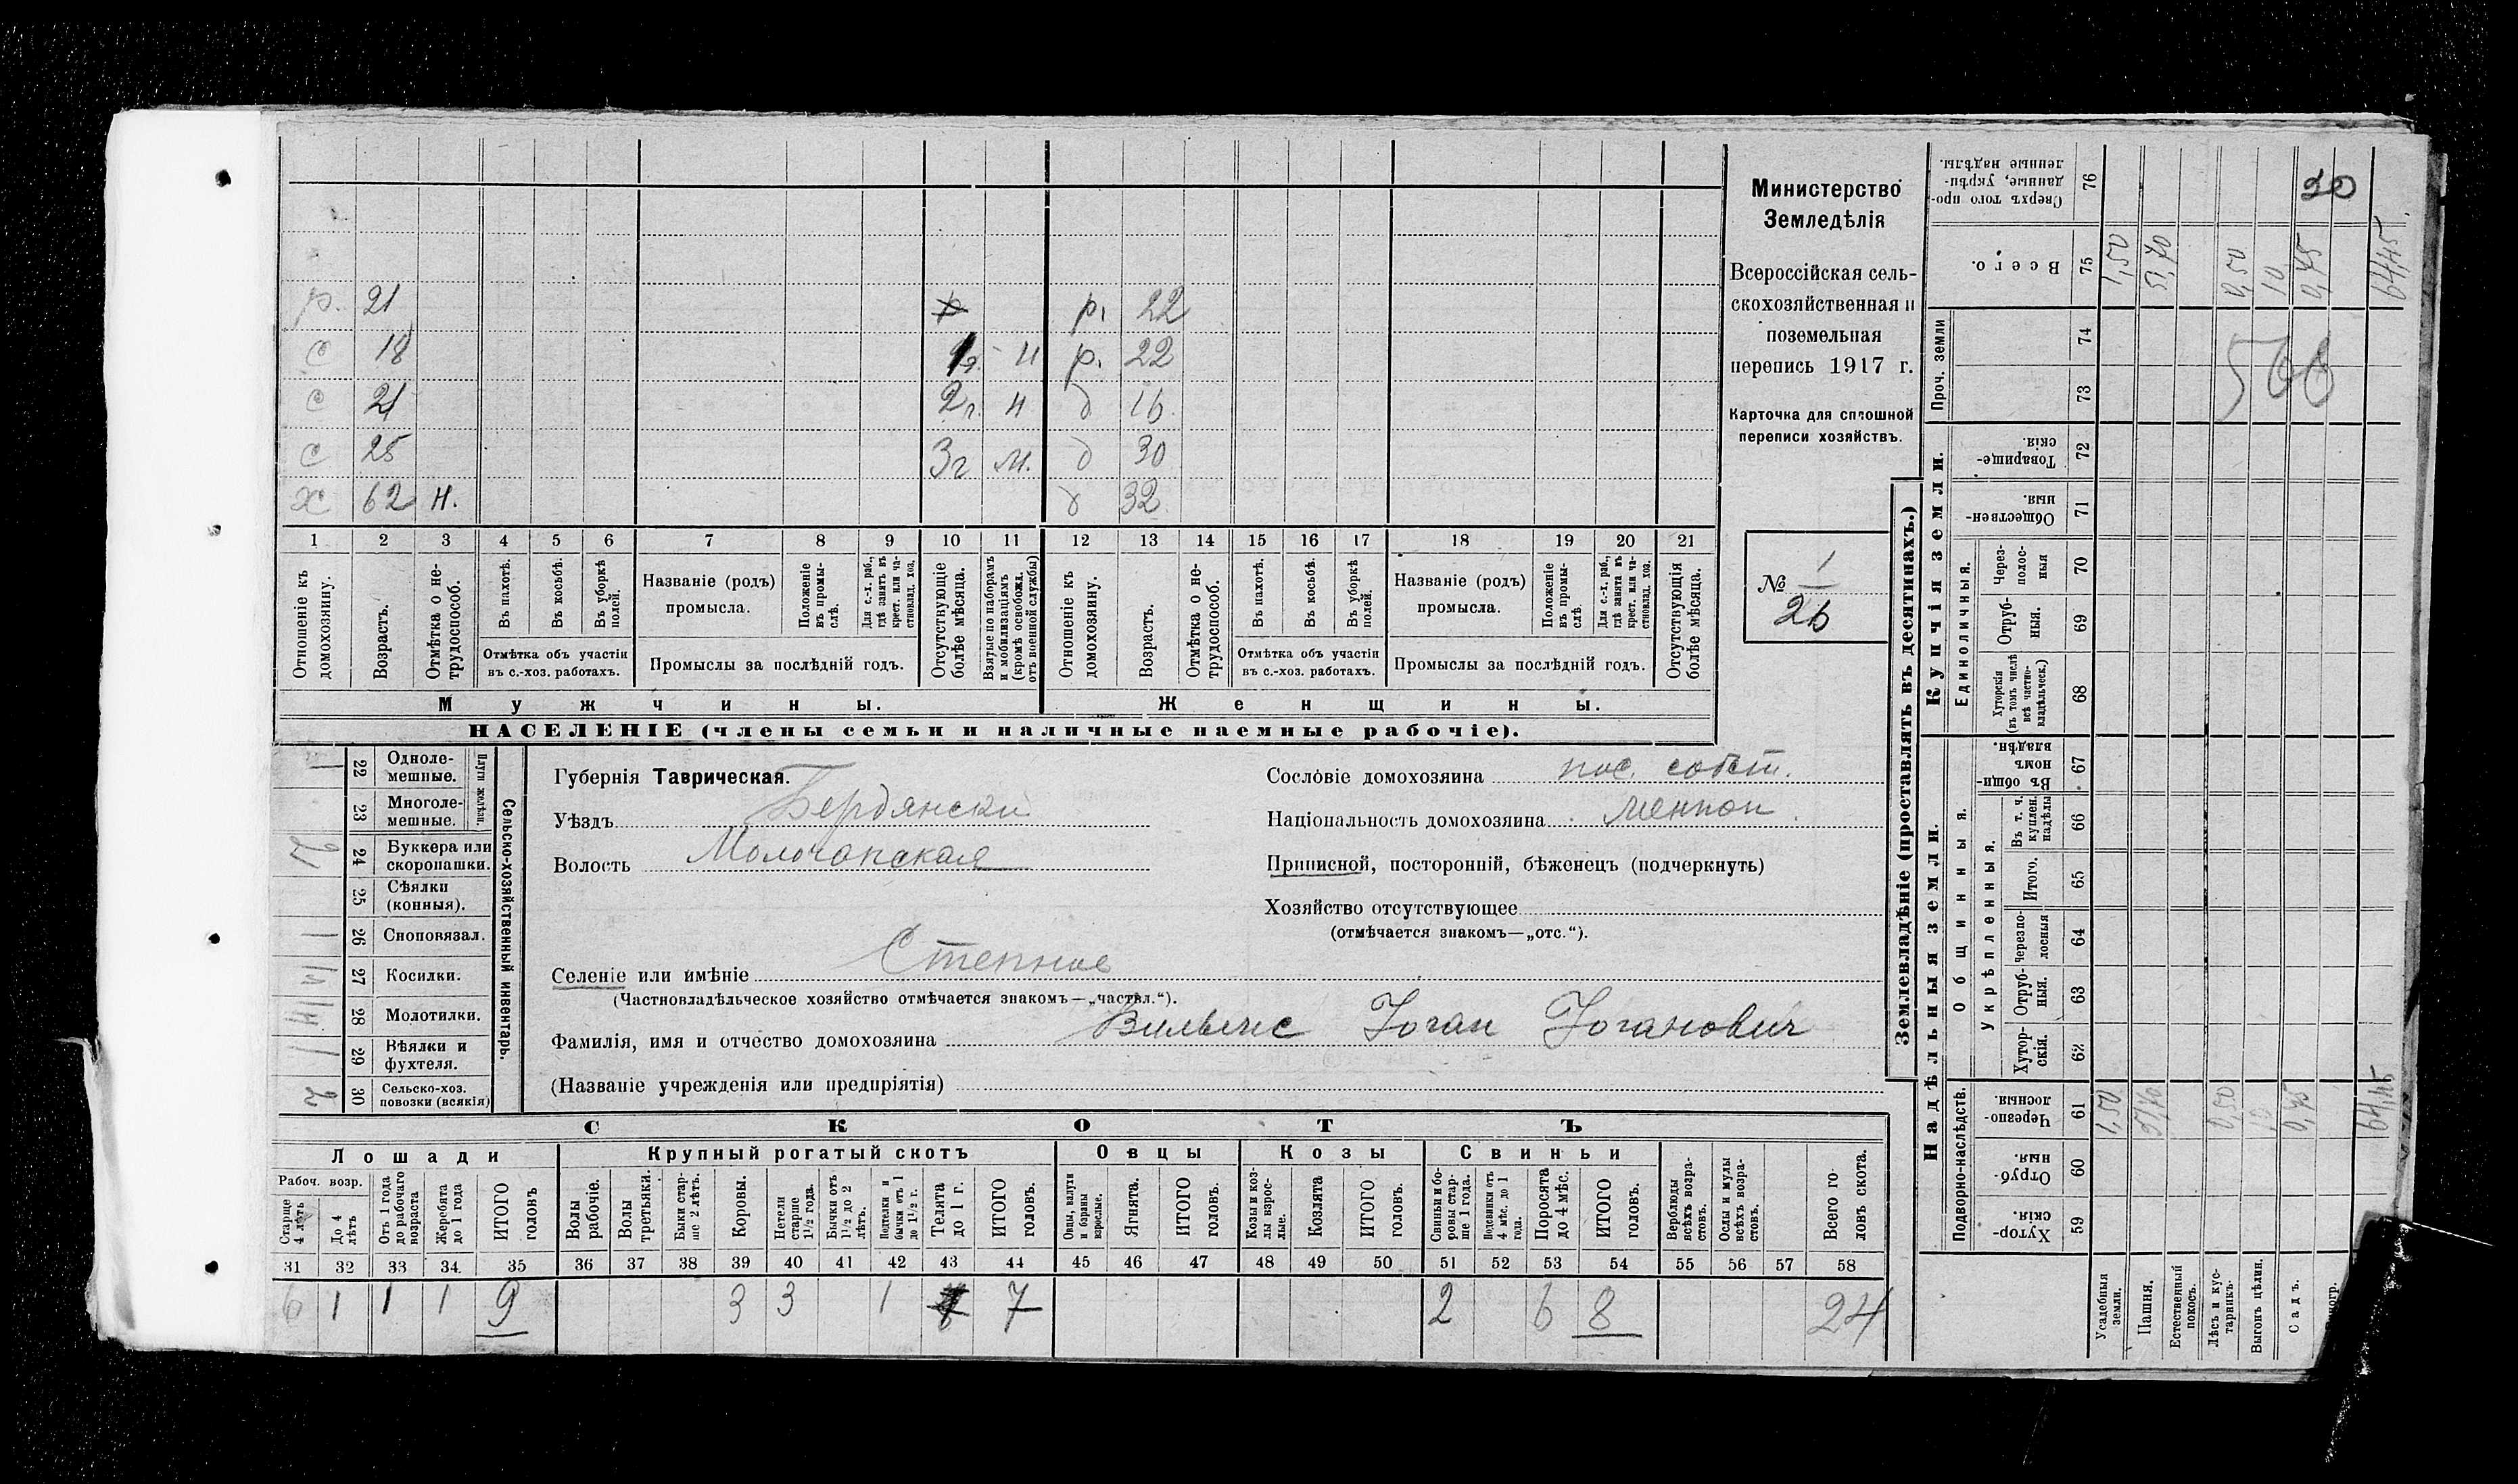 р. 21 р. 22
с 18 1г. н р. 22
с 21 2г. н д 16
с 25 3г м. д 30
х 62 н. д 32
1 2 3 4 5 6 7 8 9 10 11 12 13 14 15 16 17 18 19 20 21
Отношеніе къ домохозяину.
Возрастъ.
Отмѣтка о не-трудоспособ.
Въ пахотѣ.
Въ косьбѣ.
Въ уборкѣ полей.
Отмѣтка объ участіи въ с.-хоз. работахъ.
Названіе (родъ) промысла.
Положеніе въ промы-слѣ.
Для с.-х. раб., гдѣ занятъ въ крест. или ча-стновлад. хоз.
Промыслы за послѣдній годъ.
Отсутствующіе болѣе мѣсяца.
Взятые по наборамъ и мобилизаціямъ (кромѣ освобожд. отъ военной службы)
Отношеніе къ домохозяину.
Возрастъ.
Отмѣтка о не-трудоспособ.
Въ пахотѣ.
Въ косьбѣ.
Въ уборкѣ полей.
Отмѣтка объ участіи въ с.-хоз. работахъ.
Названіе (родъ) промысла.
Положеніе въ промы-слѣ.
Для с.-х. раб., гдѣ занята въ крест. или ча-стновлад. хоз.
Промыслы за послѣдній годъ.
Отсутствующія болѣе мѣсяца.
Мужчины. Женщины.
НАСЕЛЕНІЕ (члены семьи и наличные наемные рабочіе).
Министерство
Земледѣлія
Всероссійская сель-
скохозяйственная и
поземельная
перепись 1917 г.
Карточка для сплошной
переписи хозяйствъ.
№ 1
26
Сельско-хозяйственный инвентарь.
Плуги желѣзн.
22 Одноле-мешные. 1
23 Многоле-мешные.
24 Буккера или скоропашки. 2
25 Сѣялки (конныя).
26 Сноповязал. 1
27 Косилки.
28 Молотилки.
29 Вѣялки и фухтеля. 1
30 Сельско-хоз. повозки (всякія) 2
Губернія Таврическая.
Уѣздъ Бердянскій
Волость Молочанская
Селеніе или имѣніе Степное
(Частновладѣльческое хозяйство отмѣчается знакомъ—„частвл.“).
Фамилія, имя и отчество домохозяина Вильмс Іоган Іоганович
(Названіе учрежденія или предпріятія)
Сословіе домохозяина пос. собст.
Національность домохозяина меннон.
Приписной, посторонній, бѣженецъ (подчеркнуть)
Хозяйство отсутствующее
(отмѣчается знакомъ—„отс.“).
СКОТЪ
Лошади Крупный рогатый скотъ Овцы Козы Свиньи
Рабоч. возр.
Старше 4 лѣтъ
До 4 лѣтъ
Отъ 1 года до рабочаго возраста
Жеребята до 1 года
ИТОГО головъ
Волы рабочіе.
Волы третьяки.
Быки стар-ше 2 лѣтъ.
Коровы.
Нетели старше 1 1/2 года.
Бычки отъ 1 1/2 до 2 лѣтъ.
Подтелки и бычки отъ 1 до 1 1/2 г.
Телята до 1 г.
ИТОГО головъ.
Овцы, валухи и бараны взрослые.
Ягнята.
ИТОГО головъ.
Козы и коз-лы взрос-лые.
Козлята
ИТОГО головъ.
Свиньи и бо-ровы стар-ше 1 года.
Подсвинки отъ 4 мѣс. до 1 года.
Поросята до 4 мѣс.
ИТОГО головъ.
Верблюды всѣхъ возра-стовъ.
Ослы и мулы всѣхъ возра-стовъ.
Всего го-ловъ скота.
31 32 33 34 35 36 37 38 39 40 41 42 43 44 45 46 47 48 49 50 51 52 53 54 55 56 57 58
6 1 1 1 9 3 3 1 7 2 6 8 24
Землевладѣніе (проставлять въ десятинахъ.)
Надѣльныя земли. Купчія земли. Проч. земли
Подворно-наслѣдств.
Общинныя.
Укрѣпленныя.
Единоличныя.
59 Хутор-скія.
60 Отруб-ныя.
61 Черезпо-лосныя.
62 Хутор-скія.
63 Отруб-ныя.
64 Черезпо-лосныя
65 Итого.
66 Въ т. ч. куплен. надѣлы
67 Въ общи-номъ владѣн.
68 Хуторскія (въ томъ числѣ всѣ частно-владѣльческ.)
69 Отруб-ныя.
70 Через-полос-ныя
71 Обществен-ныя.
72 Товарище-скія.
73
74
75 Всего.
76 Сверхъ того про-данные, укрѣп-ленные надѣлы.
Усадебныя земли. 1,50 1,50
Пашня. 51,70 51,70
Естественный покосъ.
Лѣсъ и кус-тарникъ. 0,50 0,50
Выгонъ цѣлин. 10 10
Садъ. 0,75 0,75
64,45 64,45
20
566